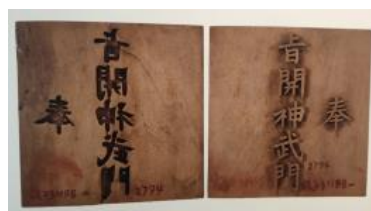 奉
旨開神武門
2794
奉
旨開神武門
2794